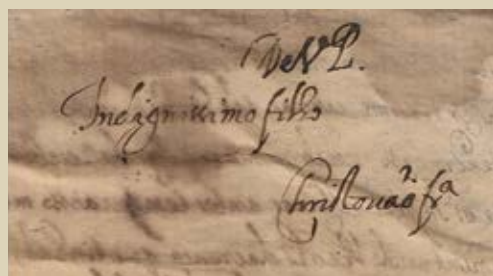 De V P.
Indignissimo filho
Christouão frª